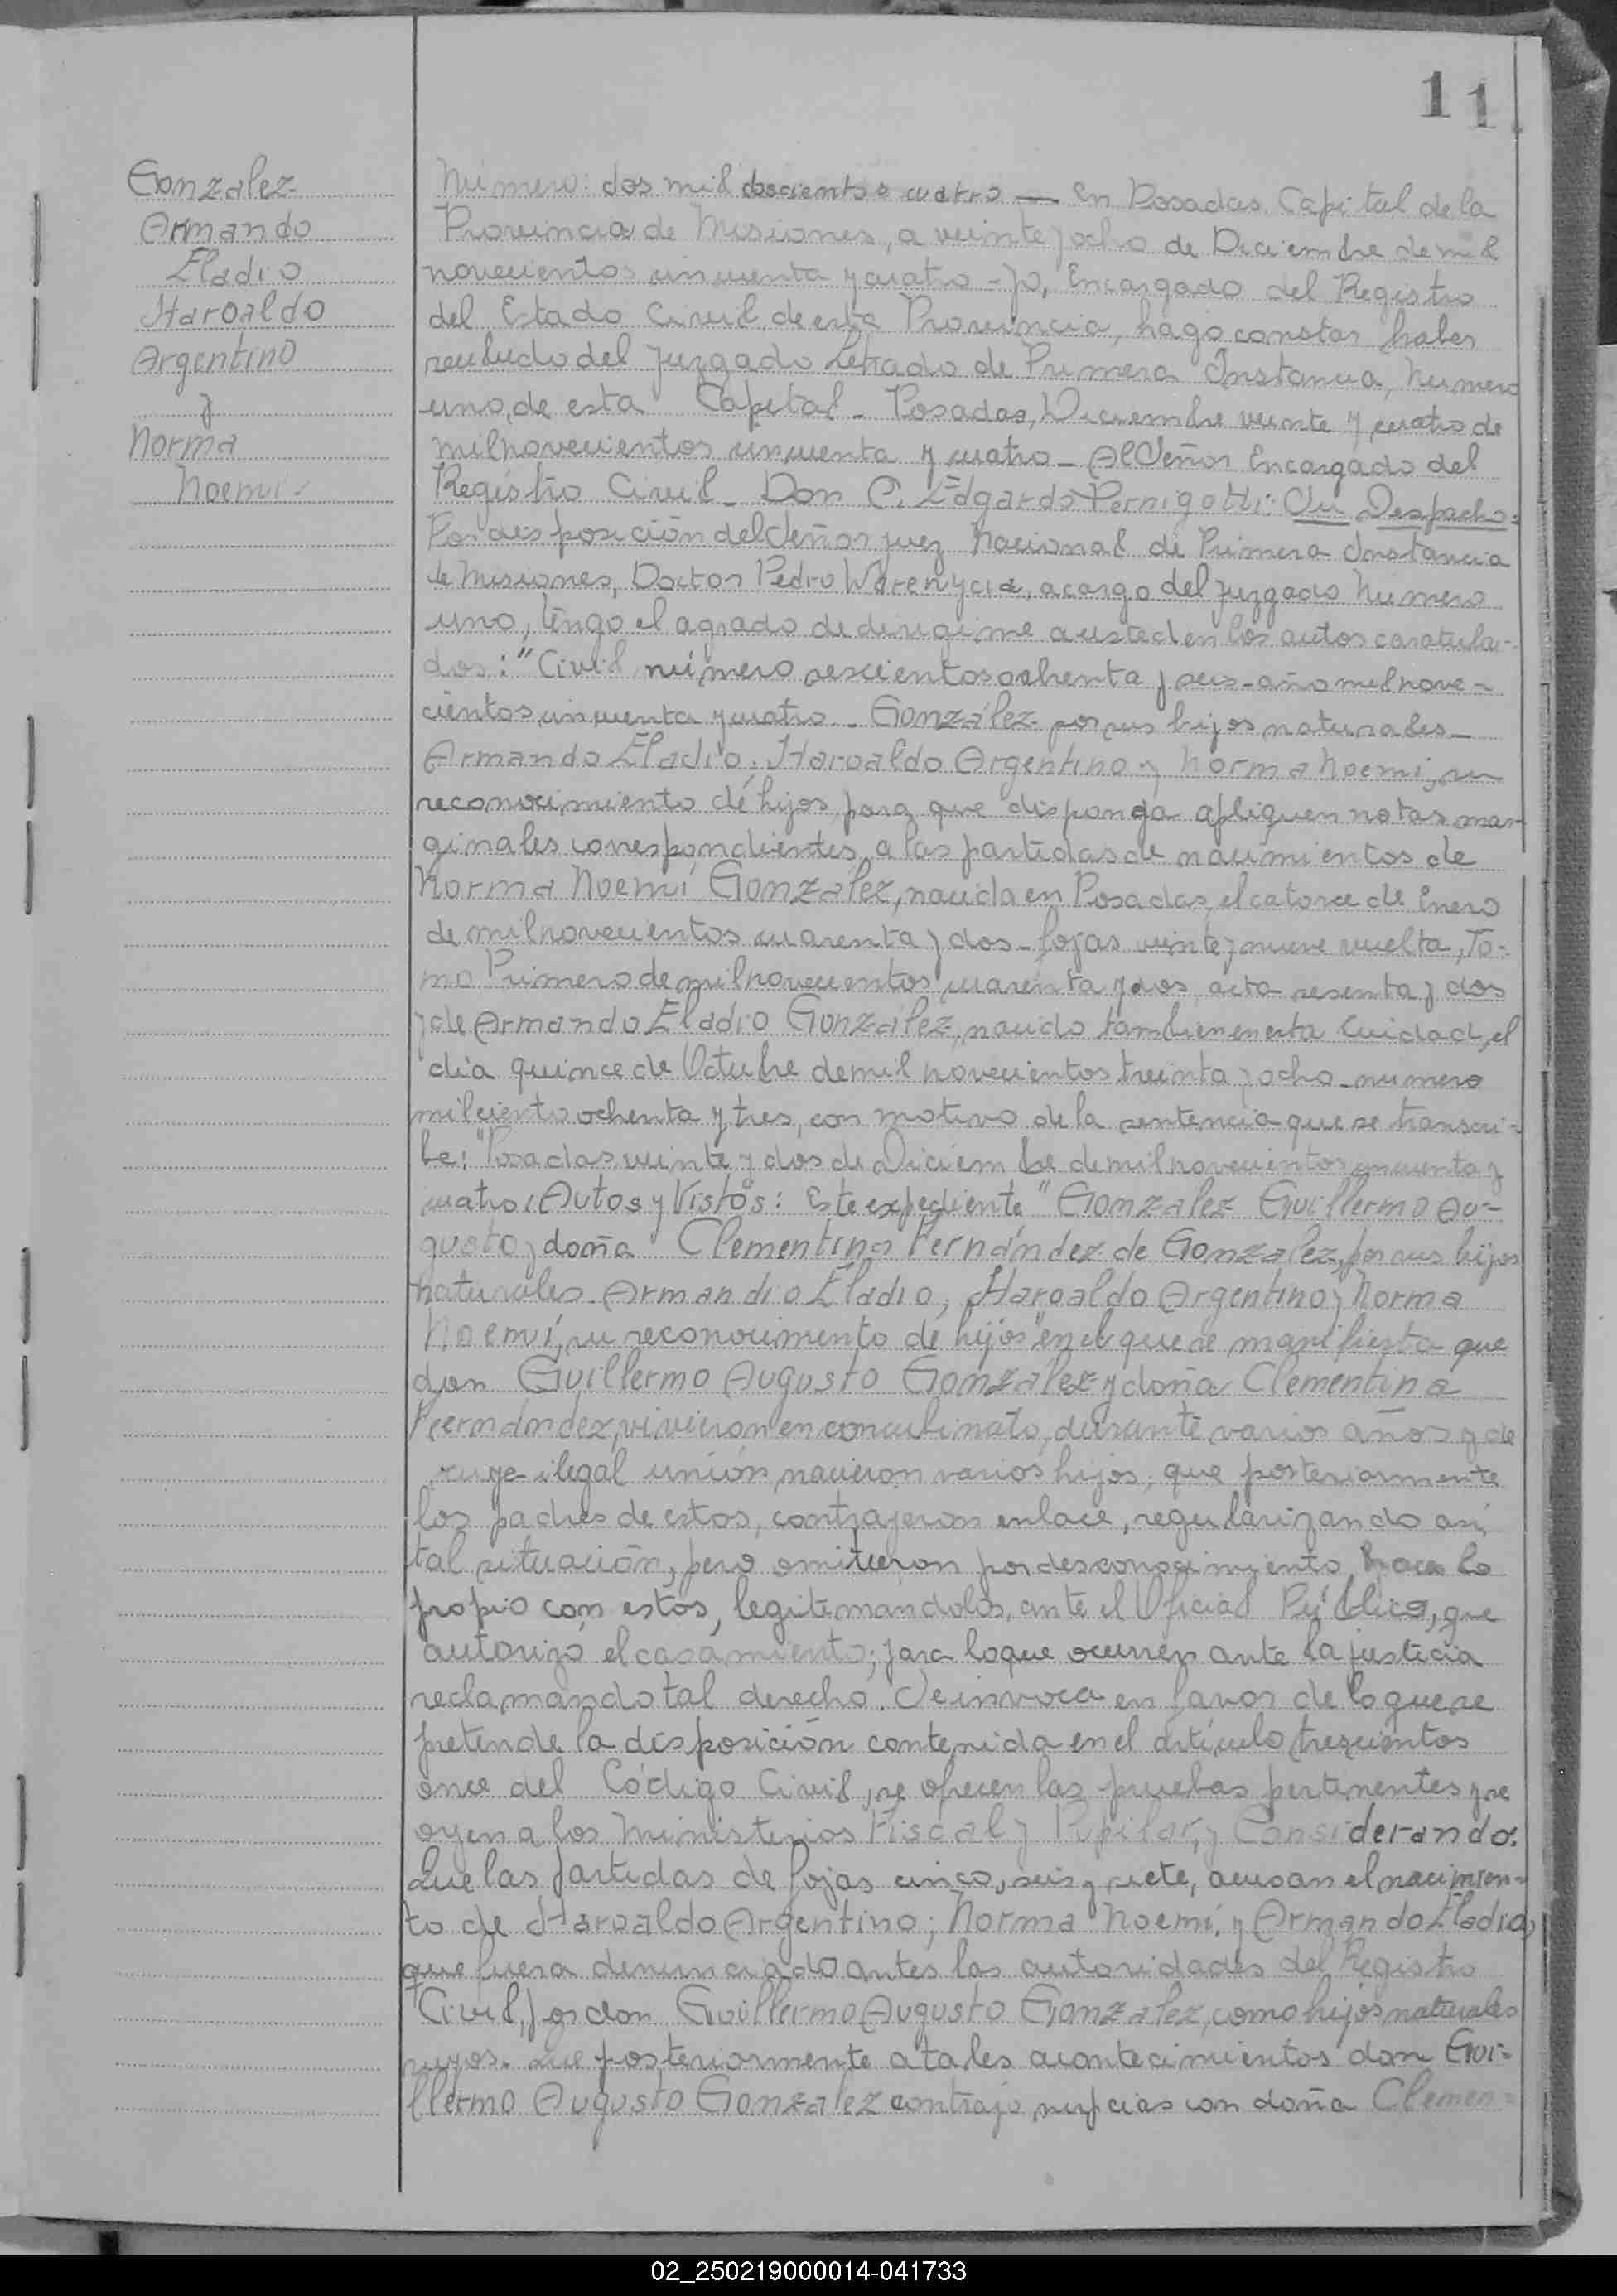 11
Gonzalez
Armando
Eladio
Haroaldo
Argentino
y
Norma
Noemí
Número: dos mil doscientos cuatro — En Posadas Capital de la
Provincia de Misiones, a veinte y ocho de Diciembre de mil
novecientos cincuenta y cuatro - yo, Encargado del Registro
del Estado Civil de esta Provincia, hago constar haber
recibido del Juzgado Letrado de Primera Instancia, Número
uno, de esta Capital - Posadas, Diciembre veinte y cuatro de
mil novecientos cincuenta y cuatro - Al Señor Encargado del
Registro Civil - Don C. Edgardo Pernigotti: Su Despacho:
Por disposición del Señor Juez Nacional de Primera Instancia
de Misiones, Doctor Pedro Warenycia, a cargo del Juzgado Número
uno, tengo el agrado de dirigirme a usted en los autos caratula-
dos: "Civil número sescientos ochenta y seis - año mil nove-
cientos cincuenta y cuatro - González por sus hijos naturales -
Armando Eladio, Haroaldo Argentino y Norma Noemí, su
reconocimiento de hijos, para que disponga apliquen notas mar-
ginales correspondientes a las partidas de nacimientos de
Norma Noemí González, nacida en Posadas, el catorce de Enero
de mil novecientos cuarenta y dos - fojas veinte y nueve vuelta, To-
mo Primero de mil novecientos cuarenta y dos, acta sesenta y dos
y de Armando Eladio González, nacido tambien en esta Ciudad, el
día quince de Octubre de mil novecientos treinta y ocho - numero
mil ciento ochenta y tres, con motivo de la sentencia que se transcri-
be: "Posadas veinte y dos de Diciembre de mil novecientos cincuenta y
cuatro: Autos y Vistos: Este expediente "Gonzalez Guillermo Au-
gusto y doña Clementina Fernández de Gonzalez, por sus hijos
naturales - Armando Eladio, Haroaldo Argentino y Norma
Noemí, su reconocimiento de hijos" en el que se manifiesta que
don Guillermo Augusto González y doña Clementina
Fernández, vivieron en concubinato, durante varios años y de
cuya ilegal unión nacieron varios hijos; que posteriormente
los padres de estos, contrajeron enlace, regularizando así,
tal situación, pero omitieron por desconocimiento hacer lo
propio con estos, legitimándolos, ante el Oficial Público, que
autorizó el casamiento; para lo que ocurren ante la justicia
reclamando tal derecho. Se invoca en favor de lo que se
pretende la disposición contenida en el artículo trescientos
once del Código Civil, se ofrecen las pruebas pertinentes y se
oyen a los Ministerios Fiscal y Pupilar, y Considerando:
Que las partidas de fojas cinco, seis y siete, acusan el nacimien-
to de Haroaldo Argentino; Norma Noemí, y Armando Eladio,
que fuera denunciado antes las autoridades del Registro
Civil, por don Guillermo Augusto Gonzalez, como hijos naturales
suyos. Que posteriormente a tales acontecimientos don Gui-
llermo Augusto Gonzalez contrajo nupcias con doña Clemen-
02_250219000014-041733